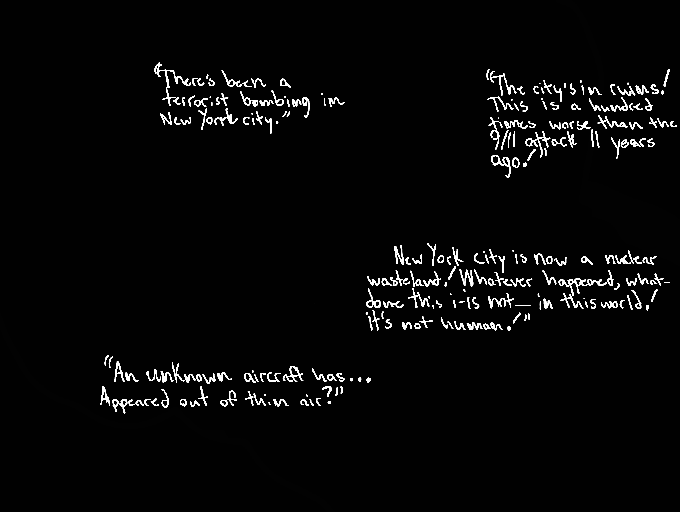 "There's been a
terrorist bombing in
New York city."
"The city's in ruins!
This is a hundred
times worse than the
9/11 attack 11 years
ago!"
New York city is now a nuclear
wasteland! Whatever happened, what-
done this i-is not— in this world!
It's not human!"
"An unknown aircraft has...
Appeared out of thin air?"